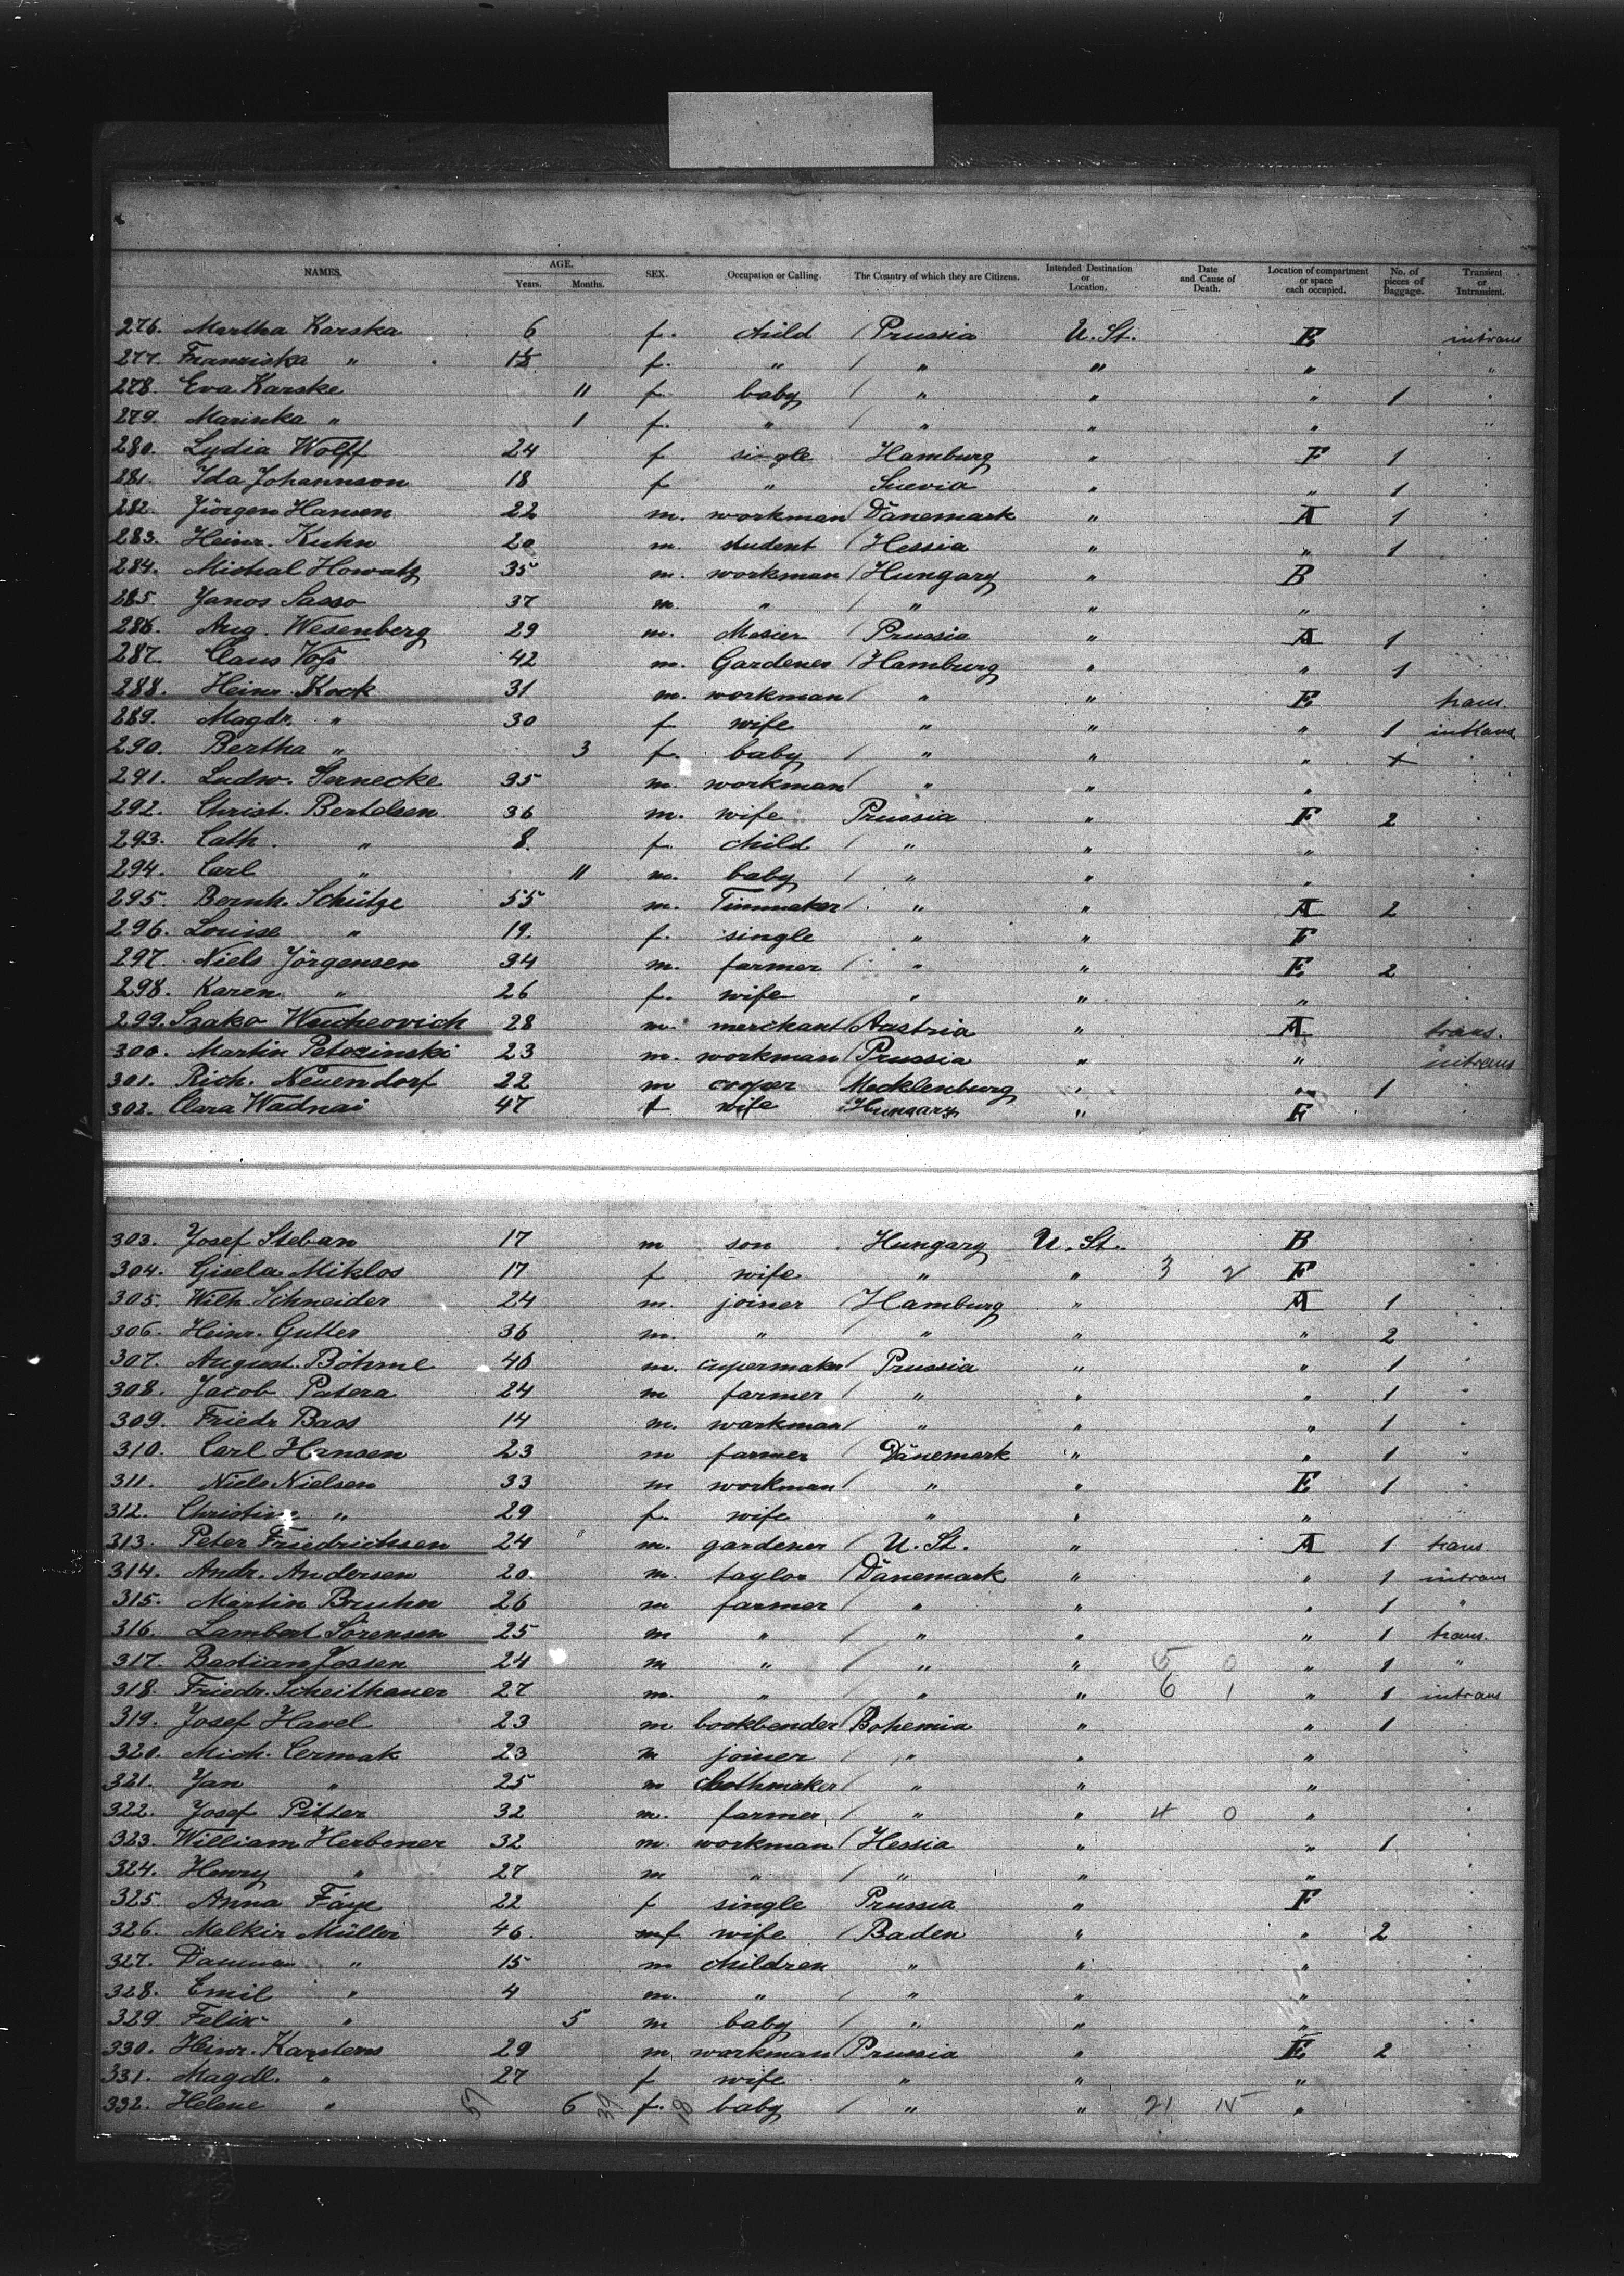 NAMES. AGE. Years. Months. SEX. Occupation or Calling. The Country of which they are Citizens. Intended Destination or Location. Date and Cause of Death. Location of compartment or space each occupied. No. of pieces of Baggage. Transient or Intransient.
276. Martha Karska 6 f. child / Prussia U. St. E intrans
277. Franziska " 1½ f. " / " " " "
278. Eva Karske 11 f. baby / " " " 1 "
279. Marinka " 1 f. " / " " " "
280. Lydia Wolff 24 f single Hamburg " F 1 "
281. Ida Johannson 18 f " Suevia " " 1 "
282. Jürgen Hansen 22 m. workman / Dänemark " A 1 "
283. Heinr. Kuhn 20 m. student / Hessia " " 1 "
284. Michal Howatz 35 m. workman / Hungary " B "
285. Janos Sasso 37 m. " / " " " "
286. Aug. Wesenberg 29 m. Mosier / Prussia " A 1 "
287. Claus Voß 42 m. Gardener / Hamburg " " 1 "
288. Heinr. Kock 31 m. workman / " " E trans.
289. Magdr. " 30 f. wife " " " 1 intrans
290. Bertha " 3 f. baby / " " " "
291. Ludw. Sernecke 35 m. workman / " " " "
292. Christ. Bertelsen 36 m. wife Prussia " F 2 "
293. Cath. " 8. f. child / " " " "
294. Carl " 11 m. baby / " " " "
295. Bernh. Schütze 55 m. Tinnmaker / " " A 2 "
296. Louise " 19. f. single " " F "
297. Niels Jörgensen 34 m. farmer / " " E 2 "
298. Karen " 26 f. wife " " " "
299. Szako Wucheovich 28 m. merchant / Austria " A trans.
300. Martin Petozinski 23 m. workman / Prussia " " intrans
301. Rich. Neuendorf 22 m cooper Mecklenburg " " 1 "
302. Clara Wadnai 47 f wife Hungary " F
303. Josef Steban 17 m son Hungary U. St. B "
304. Gisela Miklos 17 f wife " " 3 2 F "
305. Wilh. Schneider 24 m. joiner / Hamburg " A 1 "
306. Heinr. Gutter 36 m. " / " " " 2 "
307. August. Böhme 40 m. cupermaker / Prussia " " 1 "
308. Jacob Patera 24 m farmer / " " " 1 "
309. Friedr Bass 14 m. workman / " " " 1 "
310. Carl Hansen 23 m farmer / Dänemark " " 1 "
311. Niels Nielsen 33 m workman / " " E 1 "
312. Christine " 29 f. wife " " " "
313. Peter Friedrichsen 24 m. gardener / U. St. " A 1 trans.
314. Andr. Andersen 20. m. taylor / Dänemark " " 1 intrans
315. Martin Bruhn 26 m farmer / " " " 1 "
316. Lambert Sörensen 25 m " / " " " 1 trans.
317. Bastian Jessen 24 m " / " " 5 0 " 1 "
318. Friedr. Scheithauer 27 m. " / " " 6 1 " 1 intrans
319. Josef Havel 23 m bookbender / Bohemia " " 1 "
320. Mich. Cermak 23 m joiner / " " " "
321. Jan " 25 m clothmaker / " " " "
322. Josef Pitter 32 m. farmer / " " 4 0 " "
323. William Herbener 32 m. workman / Hessia " " 1 "
324. Henry " 27 m " / " " " "
325. Anna Fäye 22 f single Prussia " F "
326. Melkir Müller 46. f wife / Baden " " 2 "
327. " 15 m children " " " "
328. Emil " 4 m. " / " " " "
329. Felix " 5 m baby / " " " "
330. Heinr. Karstens 29 m workman / Prussia " E 2 "
331. Magdl. " 27 f wife " " " "
332. Helene " 6 f. baby / " " 21 15 " "